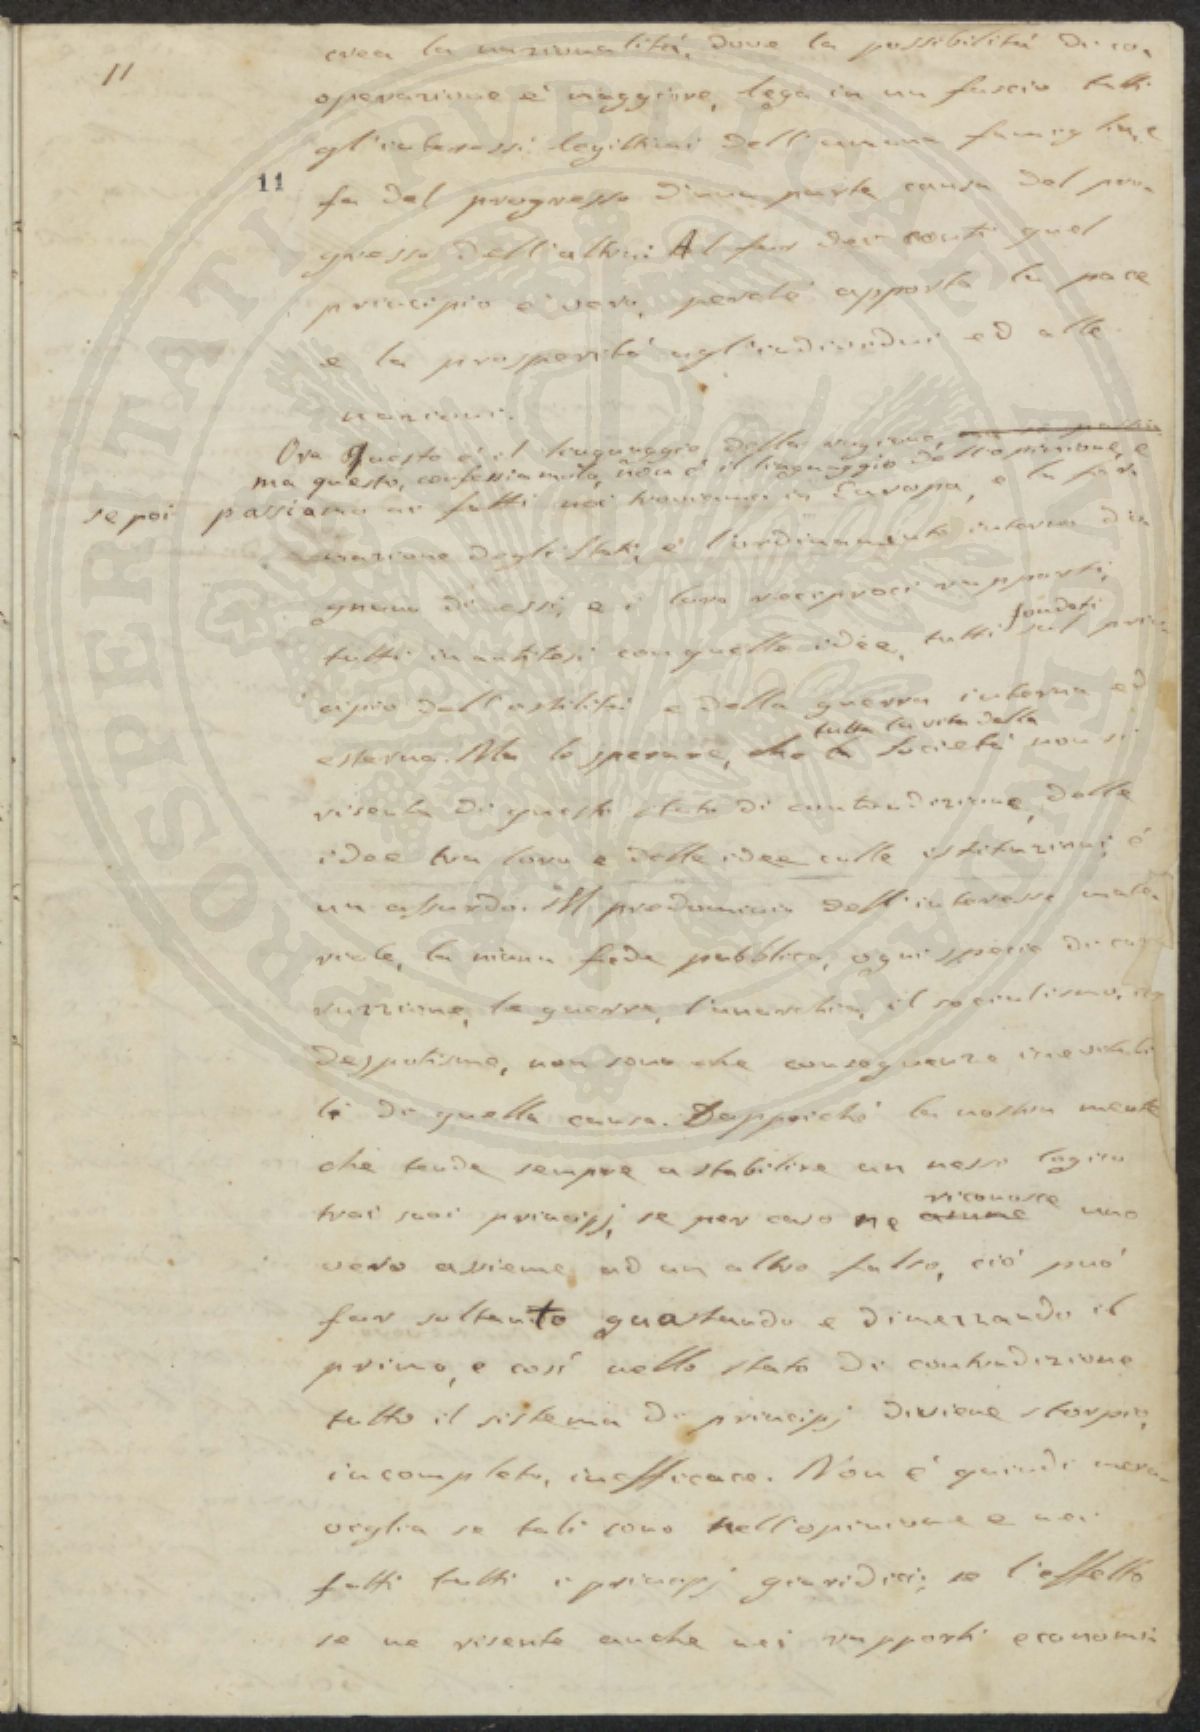 11
crea la nazionalità, dove la possibilità di co,
operazione e' maggiore, lega in un fascio tutti
gl'interessi legittimi dell'umana famiglia, e
11
fa del progresso d'una parte causa del pro,
gresso dell'altra. Al far dei conti quel
principio e' vero, perchè apporta la pace
e la prosperità agl'individui ed alle
nazioni.
Ora Questo e' il linguaggio della ragione,
ma questo, confessiamolo, non è il linguaggio dell'opinione, e
se poi passiamo ai fatti noi troviamo in Europa, e la for
mazione degli Stati, e l'ordinamento interno d'o
gnuno di essi, e i loro reciproci rapporti,
fondati
tutti in antitesi con quelle idee, tutti sul prin
cipio dell'ostilità e della guerra interna ed
tutta la vita della
esterna. Ma lo sperare, che la Società non si
risenta di questo stato di contradizione, delle
idee tra loro e delle idee colle istituzioni, è
un assurdo. Il predominio dell'interesse mate,
riale, la niuna fede pubblica, ogni specie di cor
ruzzione, la guerra, l'anarchia, il socialismo, il
despotismo, non sono che conseguenze inevitabi
li di quella causa. Dappoichè la nostra mente
che tende sempre a stabilire un nesso logico
riconosce
trai suoi principj, se per caso ne assume uno
vero assieme ad un altro falso, ciò può
far soltanto guastando e dimezzando il
primo, e così nello stato di contradizione
tutto il sistema di principj diviene storpio,
incompleto, inefficace. Non e' quindi mera,
viglia se tali sono nell'opinione e nei
fatti tutti i principj giuridici, se l'effetto
se ne risente anche nei rapporti economi